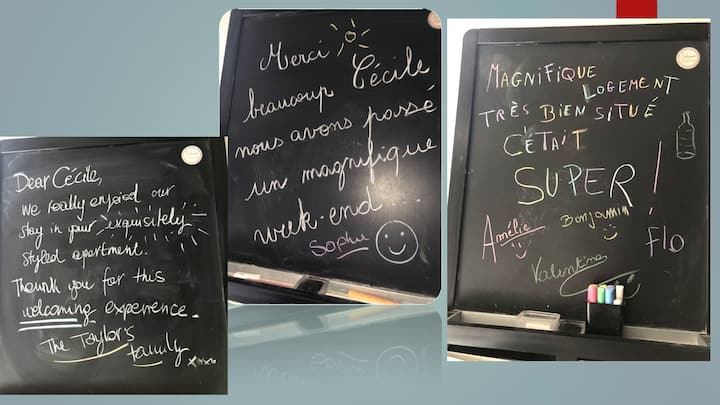 Dear Cécile,
We really enjoied our
stay in your exquisitely
styled apartment.
Thank you for this
welcoming experience.
The Taylor's
family
Merci
Cécile
beaucoup
nous avons passé
un magnifique
week-end...
Sophie
MAGNIFIQUE
LOGEMENT
TRÈS BIEN SITUÉ
C'ÉTAIT
SUPER!
Amélie Benjamin
Flo
Valentina